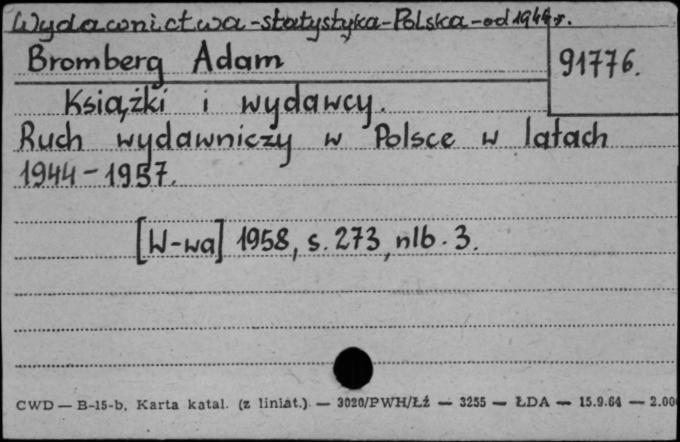 Wydawnictwa-statystyka-Polska-od 1944 r.
Bromberg Adam
91776.
Książki i wydawcy.
Ruch wydawniczy w Polsce w latach
1944-1957.
[W-wa] 1958, s. 273, nlb. 3.
CWD — B-15-b, Karta katal. (z liniat.) — 3020/PWH/Łż — 3255 — ŁDA — 15.9.64 — 2.00